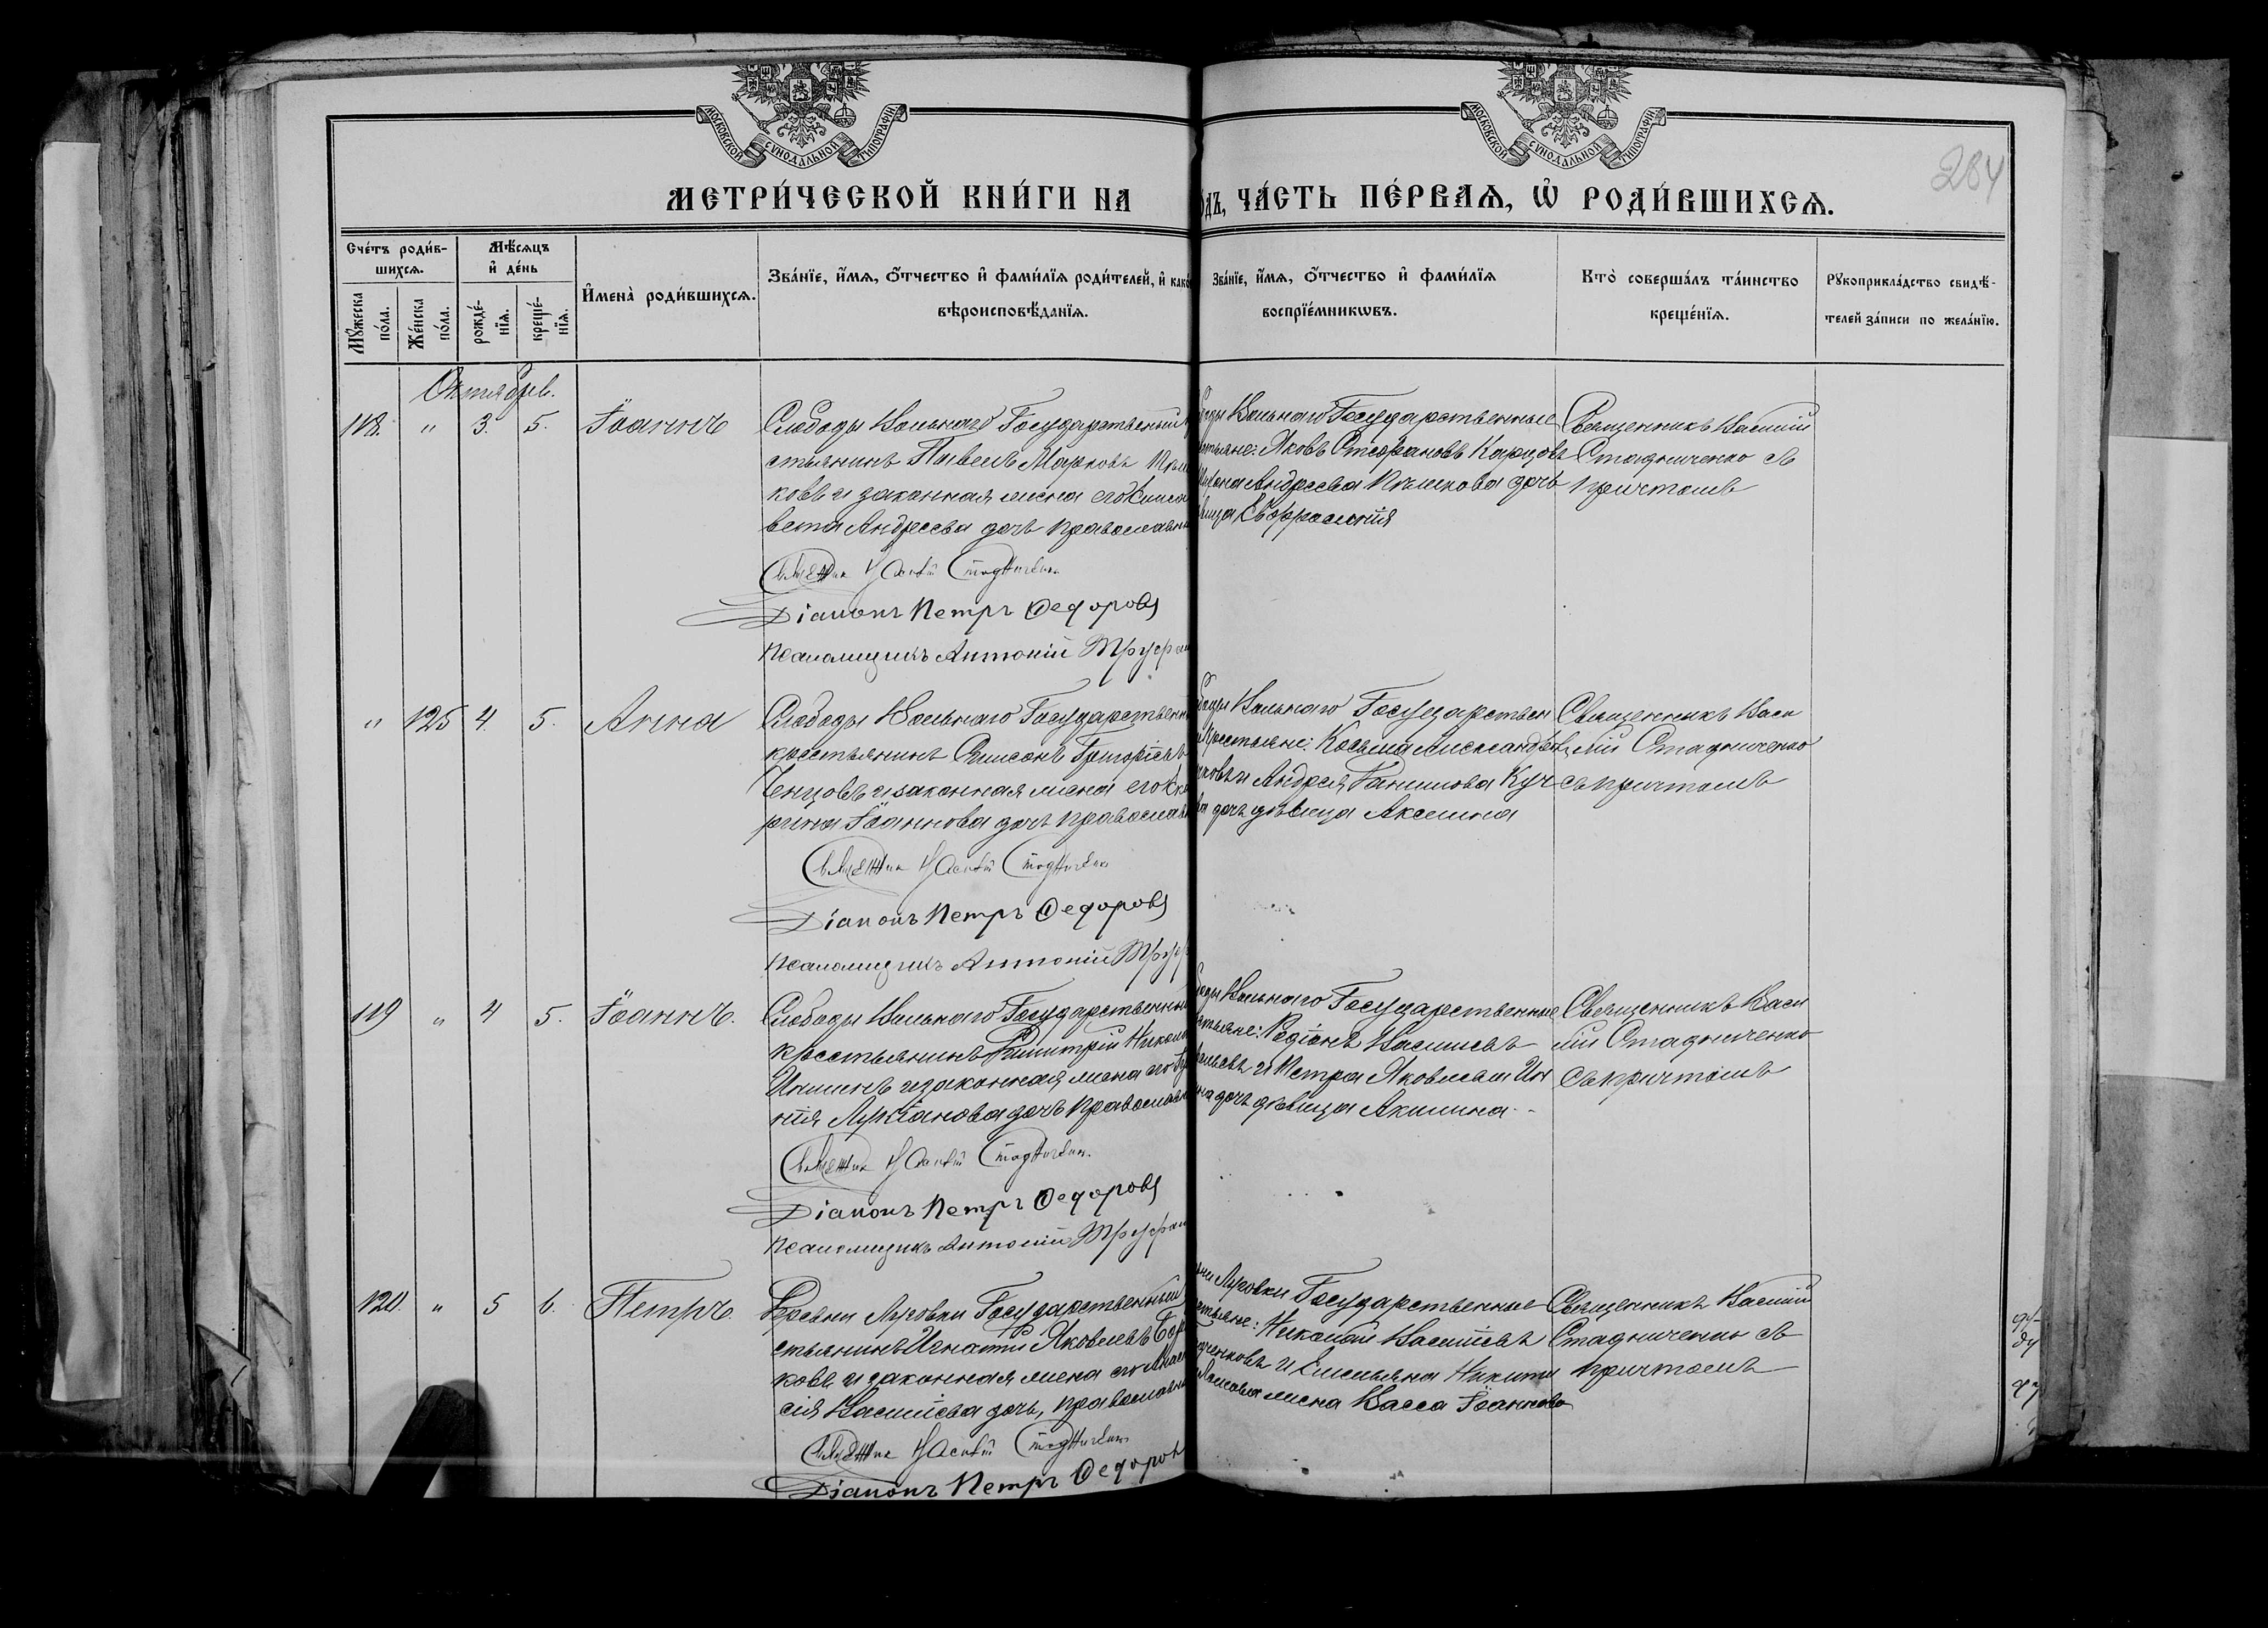 МОСКОВСКОЙ СѴНОДАЛЬНОЙ ТИПОГРАФІИ
МОСКОВСКОЙ СѴНОДАЛЬНОЙ ТИПОГРАФІИ
284
МЕТРИ́ЧЕСКОЙ КНИ́ГИ НА
ЧА́СТЬ ПЕ́РВАѦ, Ѿ РОДИ́ВШИХСѦ.
Сче́тъ роди́в-
шихсѧ.
Мѣ́сѧцъ
и҆ де́нь
Мꙋ́жеска
по́ла.
Же́нска
по́ла.
рожде́-
нїѧ.
креще́-
нїѧ.
И҆мена̀ роди́вшихсѧ.
Зва́нїе, и҆́мѧ, ѻ҆́тчество и҆ фами́лїѧ роди́телей, и҆
вѣроисповѣ́данїѧ.
Зва́нїе, и҆́мѧ, ѻ҆́тчество и҆ фами́лїѧ
воспрїе́мникѡвъ.
Кто̀ соверша́лъ та́инство
креще́нїѧ.
Рꙋкоприкла́дство свидѣ́-
телей за́писи по жела́нїю.
Октябрь.
118. " 3. 5. Іоаннъ
Слободы Вольнаго Государственный
стьянинъ Павелъ Марковъ
ковъ и законная жена его Елиса
вета Андреева дочь православн
Священник Василій Стадниченко
Діаконъ Петръ Федоровъ
Псаломщикъ Антоній
Вольнаго Государственные
Яковъ Стефановъ Карцовъ
Андреева дочь
Евфросинія
Священникъ Василій
Стадниченко съ
причтомъ
" 125 4. 5. Анна
Слободы Вольнаго Государственн
крестьянинъ Симеонъ Григорьевъ
Ченцовъ и законная жена его
рина Іоаннова дочь православн
Священник Василій Стадниченко
Діаконъ Петръ Федоровъ
Псаломщикъ Антоній
Вольнаго Государствен
Крестьяне: Косьма Александ
и Андрея Данилова Куч
дочь дѣвица Аксинія
Священникъ Васи
лій Стадниченко
съ причтомъ
119 " 4 5. Іоаннъ.
Слободы Вольнаго Государственный
крестьянинъ Димитрій Никола
и законная жена его
нія Лукіанова дочь православн
Священник Василій Стадниченко
Діаконъ Петръ Федоровъ
Псаломщикъ Антоній
Вольнаго Государственные
Родіонъ Васильевъ
и Петра Яковлева
на дочь дѣвица Акилина
Священникъ Васи
лій Стадниченко
съ причтомъ
120. " 5 6. Петръ.
Деревни Луговки Государственный
стьянинъ Игнатій Яковлевъ
ковъ и законная жена его Анаста
сія Васильева дочь, православн
Священник Василій Стадниченко
Діаконъ Петръ Федоровъ
Луговки Государственные
Николай Васильевъ
и Емельяна Никити
жена Васса Іоаннова
Священникъ Василій
Стадниченко съ
причтомъ